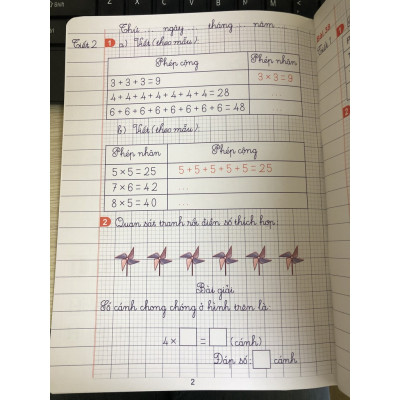 Thứ ngày tháng năm
Tiết 2
1 a) Viết (theo mẫu):
Phép cộng Phép nhân
3 + 3 + 3 = 9 3 × 3 = 9
4 + 4 + 4 + 4 + 4 + 4 + 4 = 28 ...
6 + 6 + 6 + 6 + 6 + 6 + 6 + 6 = 48
b) Viết (theo mẫu):
Phép nhân Phép cộng
5 × 5 = 25 5 + 5 + 5 + 5 + 5 = 25
7 × 6 = 42 ...
8 × 5 = 40 ...
2 Quan sát tranh rồi điền số thích hợp:
Bài giải
Số cánh chong chóng ở hình trên là
4 × = (cánh)
Đáp số: cánh
2